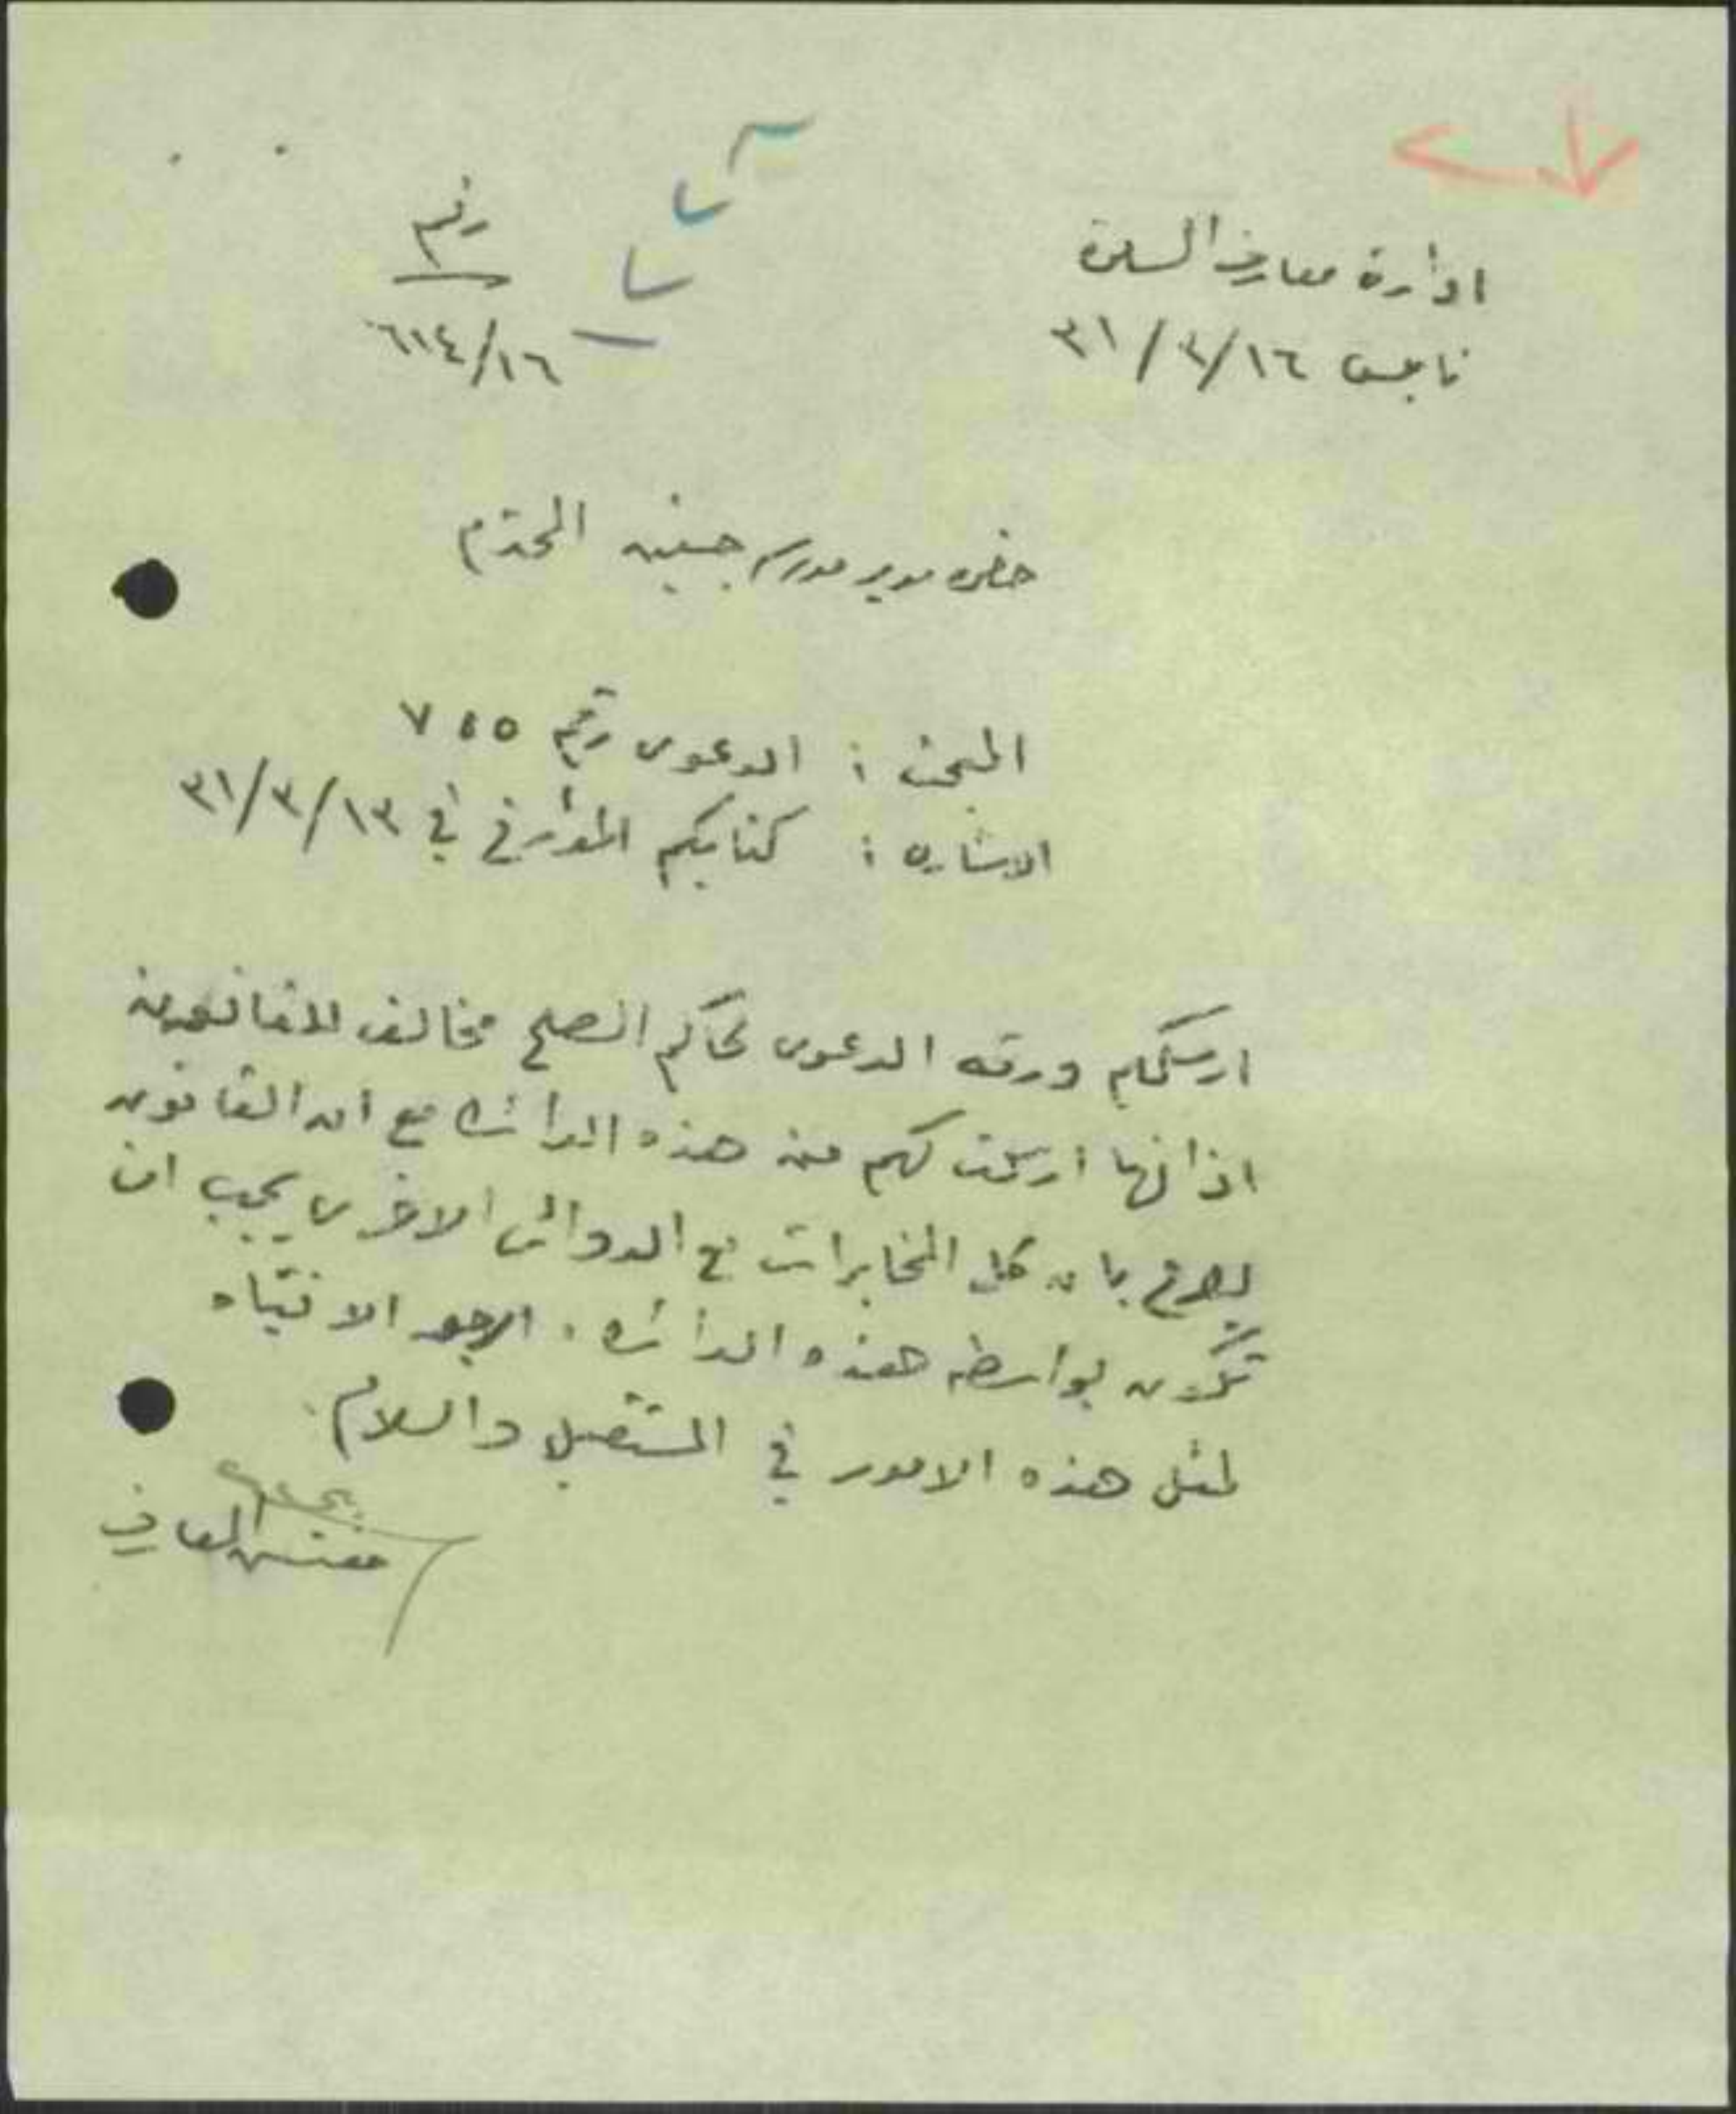 ادارة معارف السامرة
نابلس ١٦/٣/٣١
رقم
٦١٤/١٦
حضرة مدير مدرسة جنين المحترم
المبحث : الدعوى رقم ٧٤٥
الاشارة : كتابكم المؤرخ في ١٣/٣/٣١
ارسالكم ورقة الدعوى لحاكم الصلح مخالف للقانون
اذ انها ارسلت لكم من هذه الدائرة مع ان القانون
يصرح بان كل المخابرات مع الدوائر الاخرى يجب ان
تكون بواسطة هذه الدائرة . ارجو الانتباه
لمثل هذه الامور في المستقبل والسلام .
مفتش المعارف